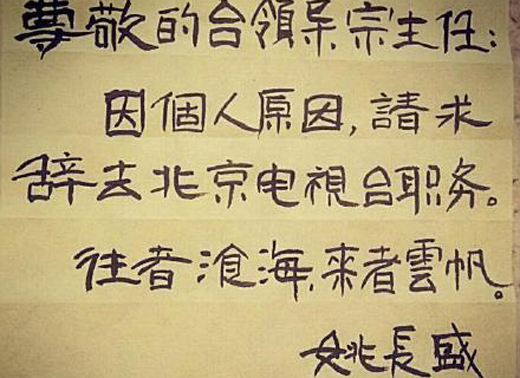 尊敬的台領导宗主任:
因個人原因,請求
辞去北京电視台职务。
往者滄海,来者雲帆。
姚長盛